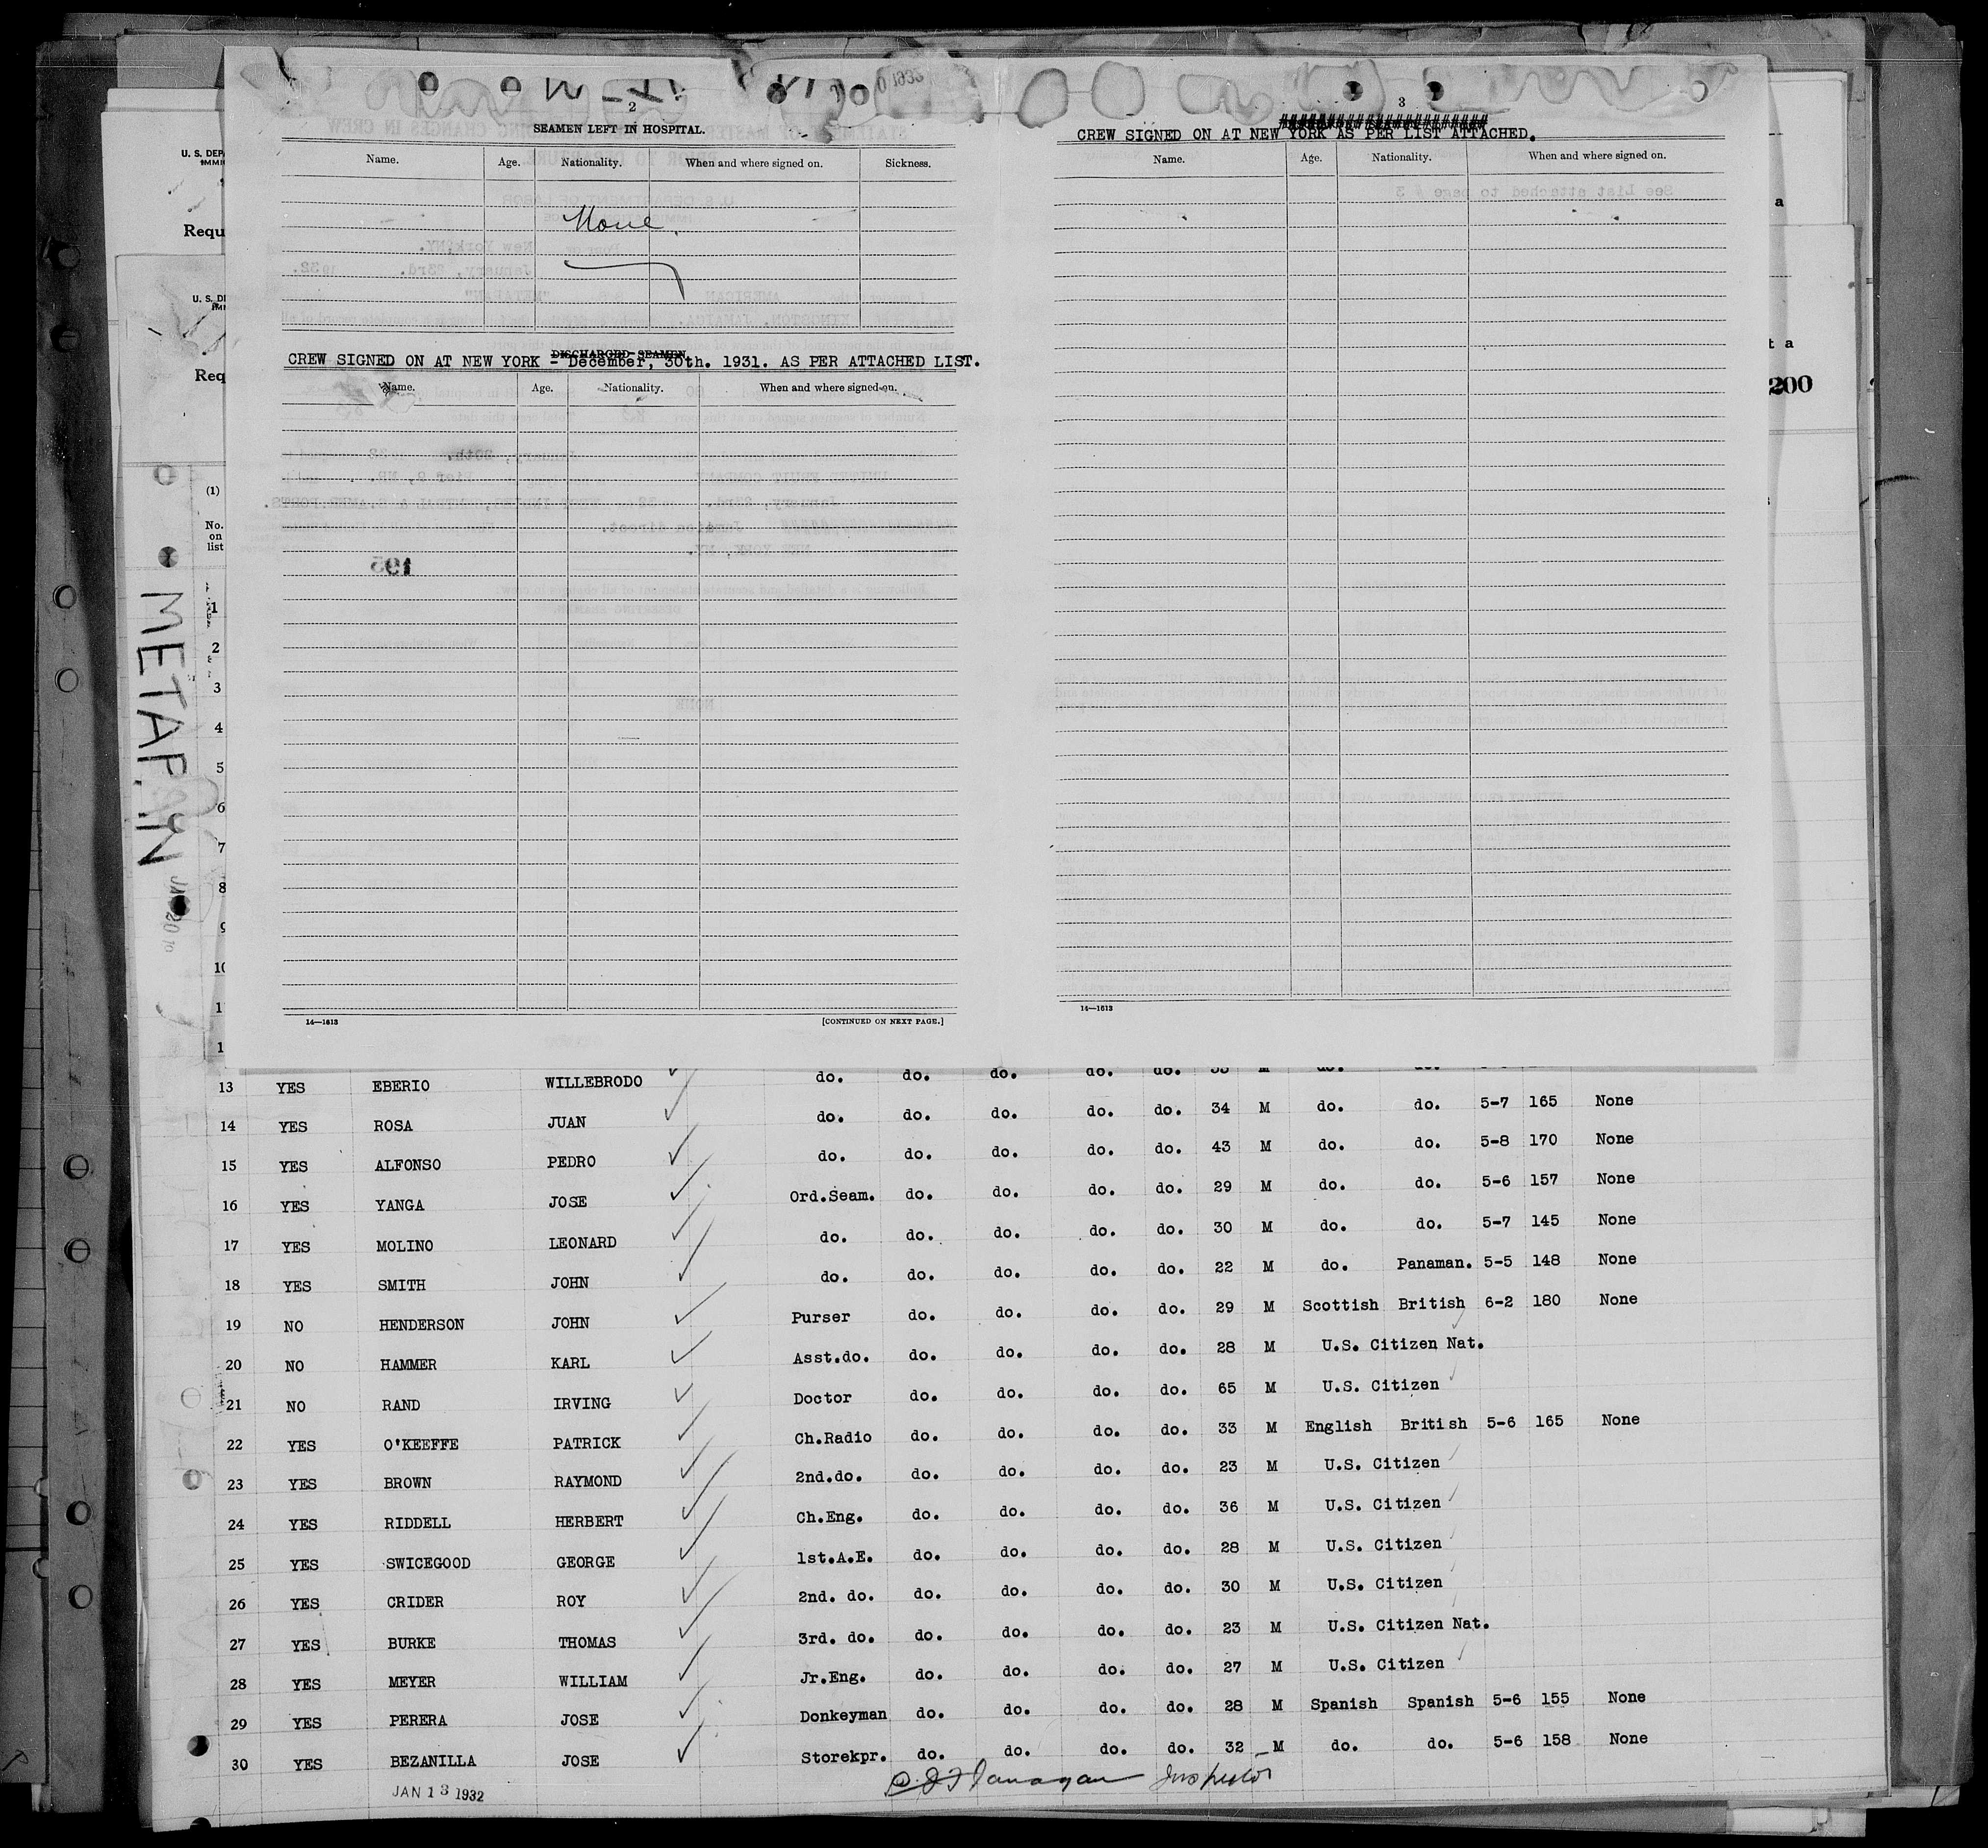 2
SEAMEN LEFT IN HOSPITAL.
Name. Age. Nationality. When and where signed on. Sickness.
None.
DISCHARGED SEAMEN
CREW SIGNED ON AT NEW YORK - December, 30th. 1931. AS PER ATTACHED LIST.
Name. Age. Nationality. When and where signed on.
195
14—1613 [CONTINUED ON NEXT PAGE.]
3
CREW SIGNED ON AT NEW YORK AS PER LIST ATTACHED.
Name. Age. Nationality. When and where signed on.
See List attached to page # 3
14—1613
U. S. DEP
IMMI
Requ
U. S. DE
IMMI
Req
a
t a
200
(1)
No.
on
list
1
2
3
4
5
6
7
8
9
10
1
1
METAP. IN
13 YES EBERIO WILLEBRODO do. do. do. do. do. 35 M do. do.
14 YES ROSA JUAN do. do. do. do. do. 34 M do. do. 5-7 165 None
15 YES ALFONSO PEDRO do. do. do. do. do. 43 M do. do. 5-8 170 None
16 YES YANGA JOSE Ord.Seam. do. do. do. do. 29 M do. do. 5-6 157 None
17 YES MOLINO LEONARD do. do. do. do. do. 30 M do. do. 5-7 145 None
18 YES SMITH JOHN do. do. do. do. do. 22 M do. Panaman. 5-5 148 None
19 NO HENDERSON JOHN Purser do. do. do. do. 29 M Scottish British 6-2 180 None
20 NO HAMMER KARL Asst.do. do. do. do. do. 28 M U.S. Citizen Nat.
21 NO RAND IRVING Doctor do. do. do. do. 65 M U.S. Citizen
22 YES O'KEEFFE PATRICK Ch.Radio do. do. do. do. 33 M English British 5-6 165 None
23 YES BROWN RAYMOND 2nd.do. do. do. do. do. 23 M U.S. Citizen
24 YES RIDDELL HERBERT Ch.Eng. do. do. do. do. 36 M U.S. Citizen
25 YES SWICEGOOD GEORGE 1st.A.E. do. do. do. do. 28 M U.S. Citizen
26 YES CRIDER ROY 2nd. do. do. do. do. do. 30 M U.S. Citizen
27 YES BURKE THOMAS 3rd. do. do. do. do. do. 23 M U.S. Citizen Nat.
28 YES MEYER WILLIAM Jr.Eng. do. do. do. do. 27 M U.S. Citizen
29 YES PERERA JOSE Donkeyman do. do. do. do. 28 M Spanish Spanish 5-6 155 None
30 YES BEZANILLA JOSE Storekpr. do. do. do. do. 32 M do. do. 5-6 158 None
JAN 13 1932
Flanagan Inspector